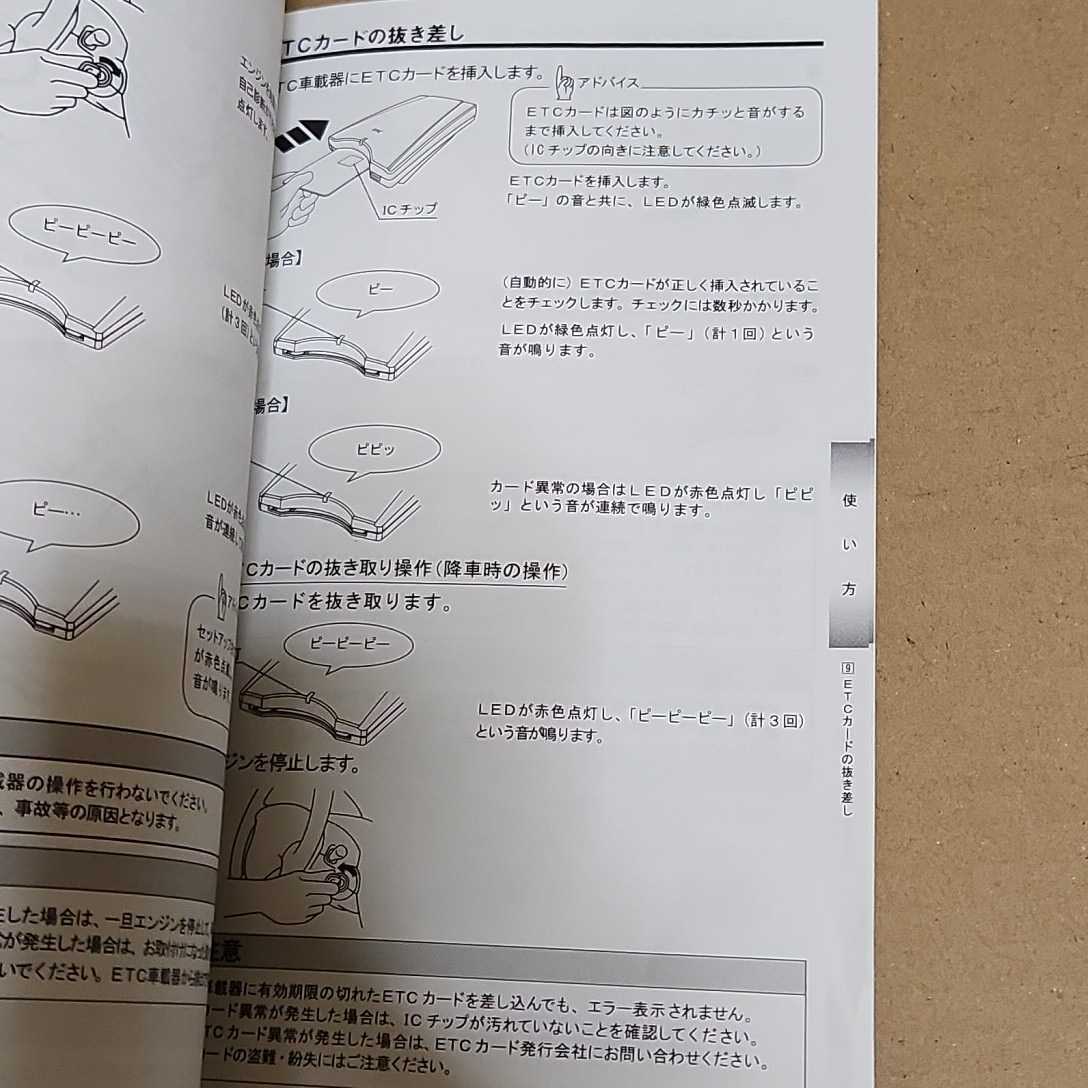 エンジンを
自己診断
点灯します。
ピーピーピー
LEDが赤色
(計3回)とい
ピー…
LEDが赤色
音が連続して
アド
セットアップ
が赤色点滅
音が鳴ります
載器の操作を行わないでください。
、事故等の原因となります。
生した場合は、一旦エンジンを停止して、
が発生した場合は、お取付けになった
いでください。ETC車載器から
TCカードの抜き差し
TC車載器にETCカードを挿入します。
アドバイス
ETCカードは図のようにカチッと音がする
まで挿入してください。
(ICチップの向きに注意してください。)
ICチップ
ETCカードを挿入します。
「ピー」の音と共に、LEDが緑色点滅します。
場合】
ピー
(自動的に)ETCカードが正しく挿入されているこ
とをチェックします。チェックには数秒かかります。
LEDが緑色点灯し、「ピー」(計1回)という
音が鳴ります。
場合】
ピピッ
カード異常の場合はLEDが赤色点灯し「ピピ
ッ」という音が連続で鳴ります。
Cカードの抜き取り操作(降車時の操作)
Cカードを抜き取ります。
ピーピーピー
LEDが赤色点灯し、「ピーピーピー」(計3回)
という音が鳴ります。
ジンを停止します。
注意
車載器に有効期限の切れたETCカードを差し込んでも、エラー表示されません。
ード異常が発生した場合は、ICチップが汚れていないことを確認してください。
TCカード異常が発生した場合は、ETCカード発行会社にお問い合わせください。
ードの盗難・紛失にはご注意ください。
使い方
9 ETCカードの抜き差し